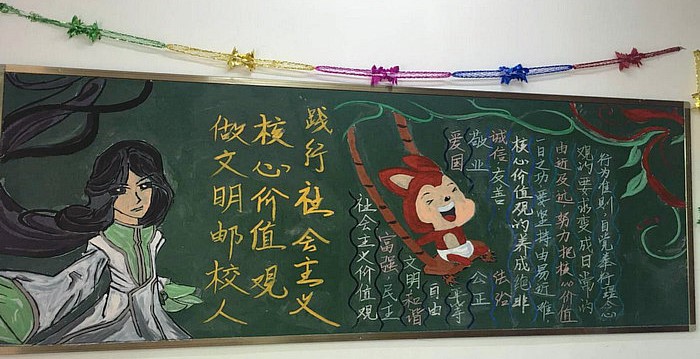 践行社会主义
核心价值观
做文明邮校人
社会主义价值观
富强民主
文明和谐
自由
平等
公正
法治
爱国
敬业
诚信友善
核心价值观的养成绝非
一日之功要坚持由易近难
由近及远 努力把核心价值
观的要求变成日常的
行为准则,自觉奉行